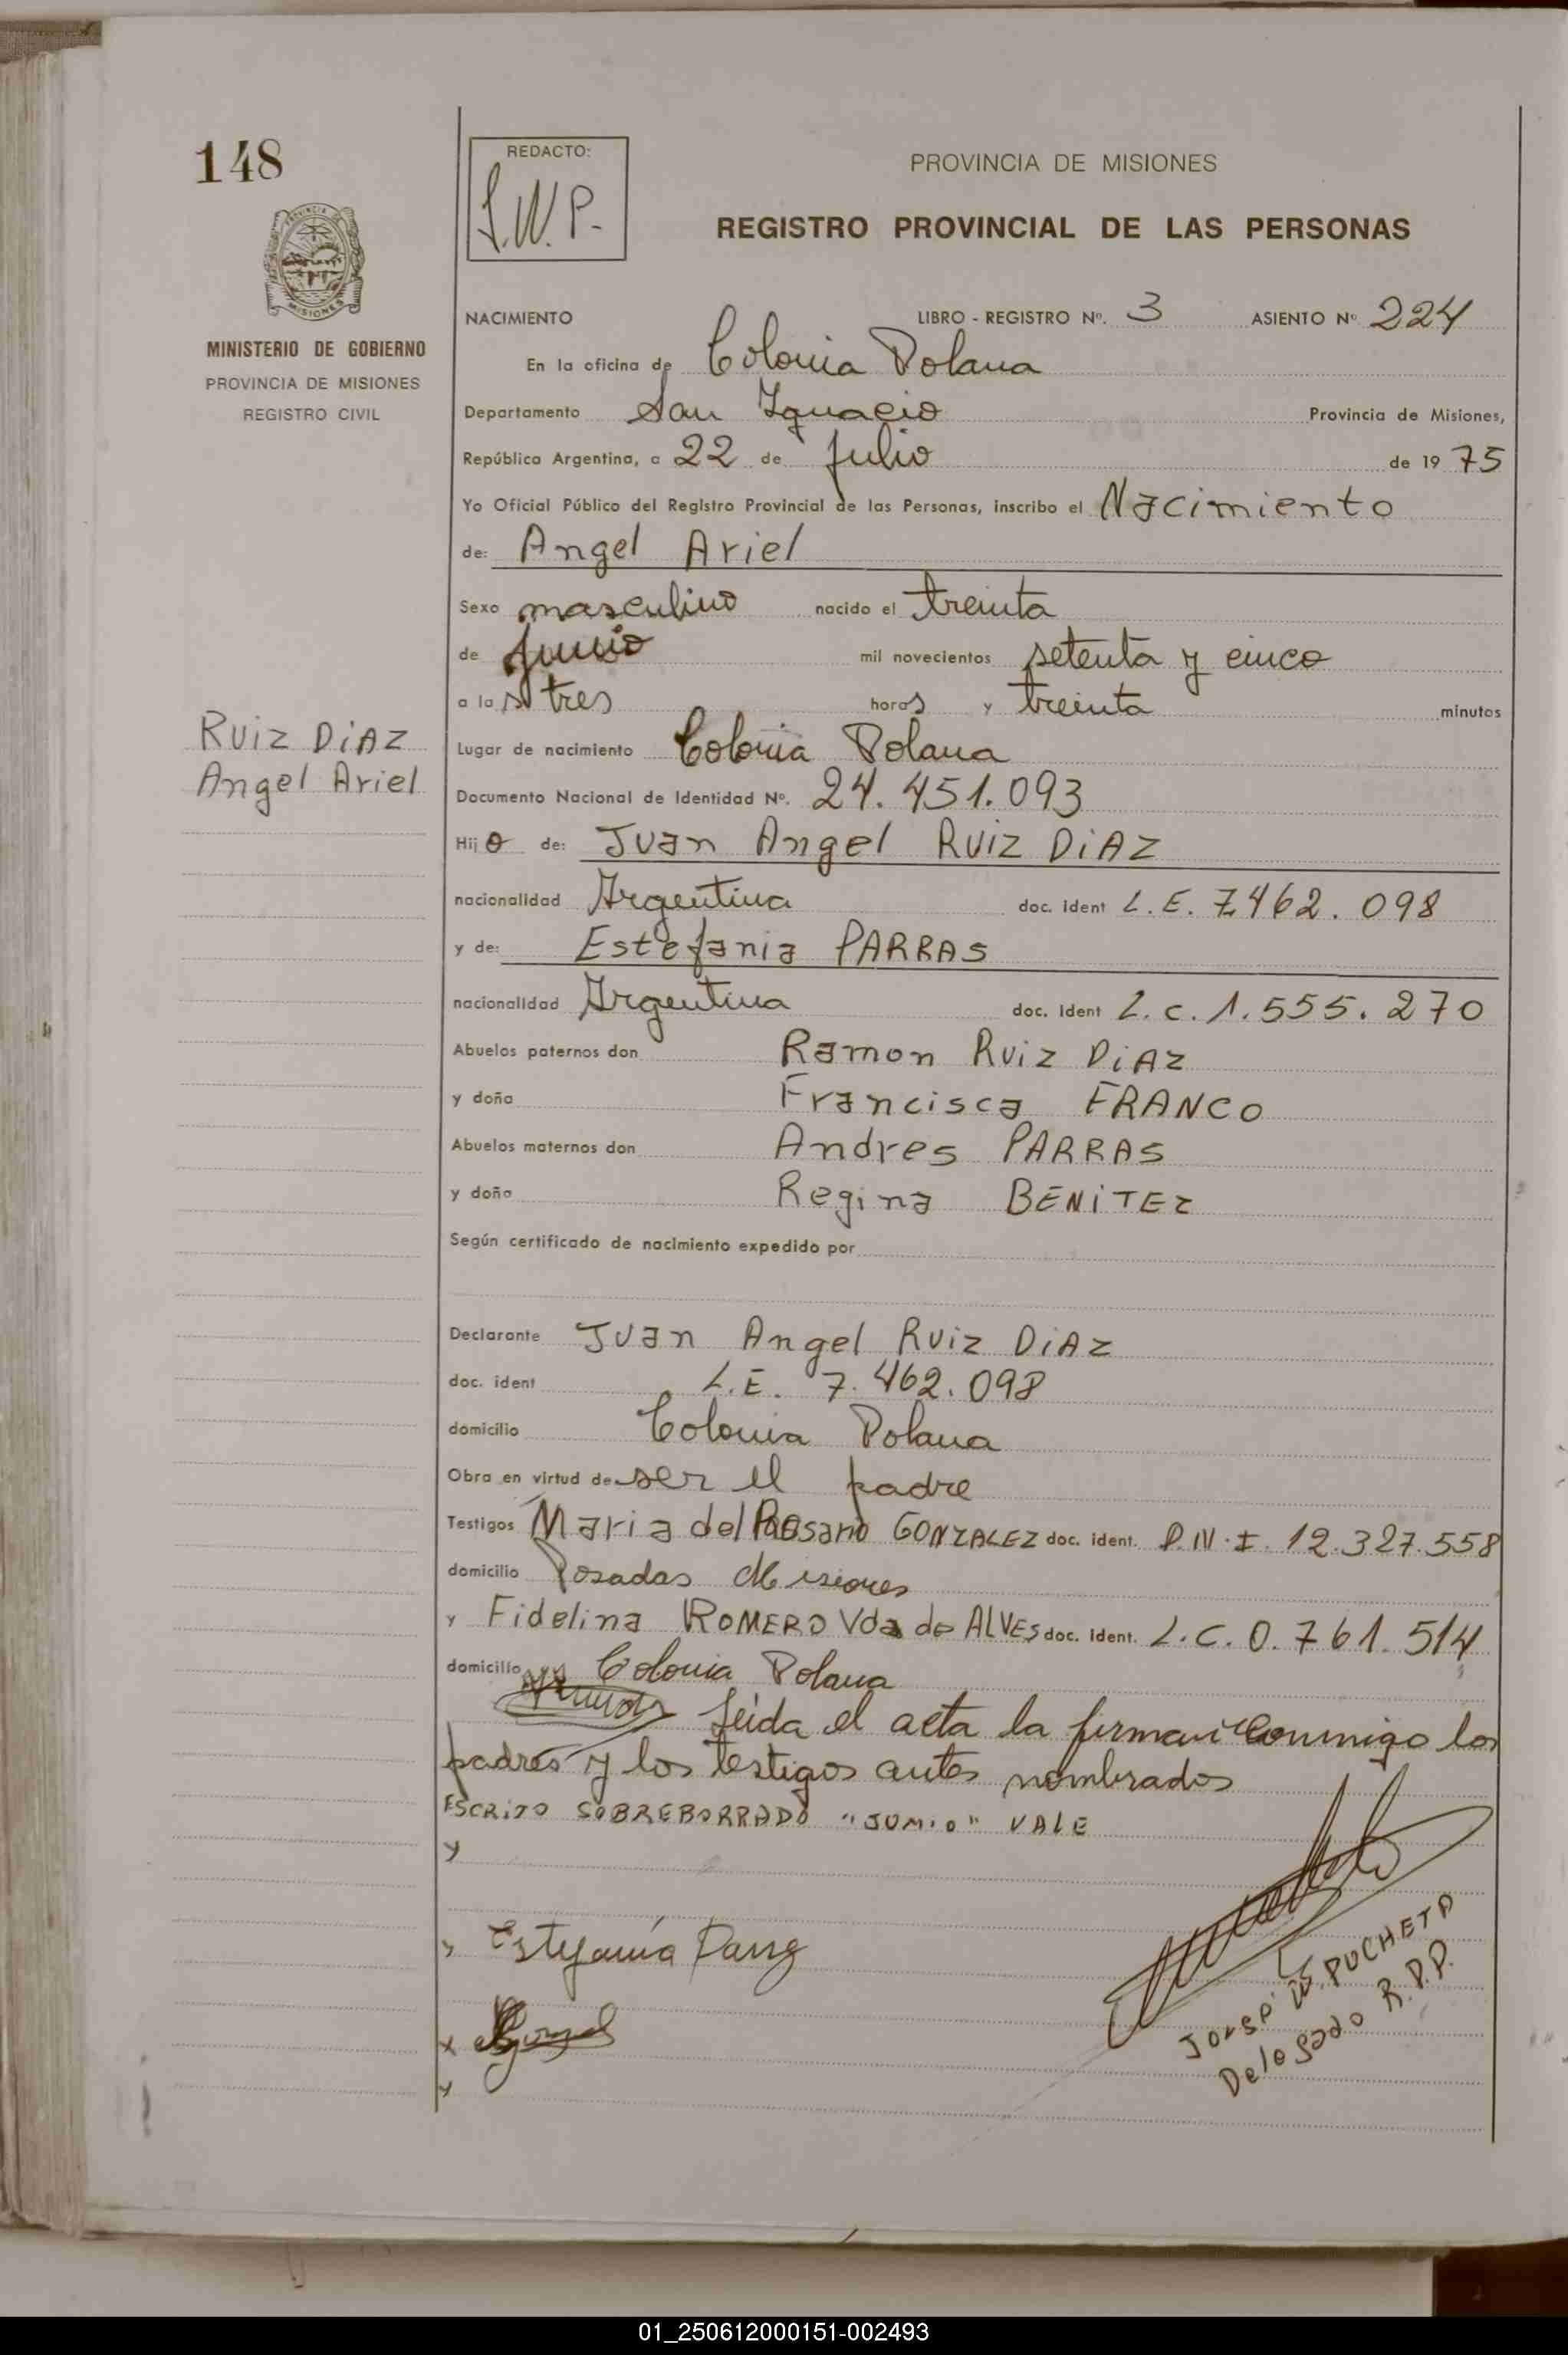 148
REDACTO:
J.W.P.-
PROVINCIA DE MISIONES
REGISTRO PROVINCIAL DE LAS PERSONAS
PROVINCIA DE
MISIONES
MINISTERIO DE GOBIERNO
PROVINCIA DE MISIONES
REGISTRO CIVIL
NACIMIENTO LIBRO - REGISTRO Nº. 3 ASIENTO Nº 224
En la oficina de Colonia Polana
Departamento San Ignacio Provincia de Misiones,
República Argentina, a 22 de Julio de 19 75
Yo Oficial Público del Registro Provincial de las Personas, inscribo el Nacimiento
de: Angel Ariel
Sexo masculino nacido el treinta
de junio mil novecientos setenta y cinco
a las tres horas y treinta minutos
Ruiz DiAZ
Angel Ariel
Lugar de nacimiento Colonia Polana
Documento Nacional de Identidad Nº. 24.451.093
Hijo de: Juan Angel Ruiz DiAZ
nacionalidad Argentina doc. ident L.E. 7.462.098
y de: Estefania PARRAS
nacionalidad Argentina doc. ident L.C. 1.555.270
Abuelos paternos don Ramon Ruiz DiAZ
y doña Francisca FRANCO
Abuelos maternos don Andres PARRAS
y doña Regina BENiTEZ
Según certificado de nacimiento expedido por
Declarante Juan Angel Ruiz DiAZ
doc. ident L.E. 7.462.098
domicilio Colonia Polana
Obra en virtud de ser el padre
Testigos Maria del Rosario GONZALEZ doc. ident. D.N.I. 12.327.558
domicilio Posadas Misiones
y Fidelina ROMERO Vda de ALVES doc. ident. L.C. 0.761.514
domicilio Colonia Polana
Leida el acta la firman conmigo los
padres y los testigos antes nombrados
ESCRiTO SOBREBORRADO "JUNiO" VALE
Estefanía Parra
JORGE W. PUCHETA
Delegado R.P.P.
01_250612000151-002493